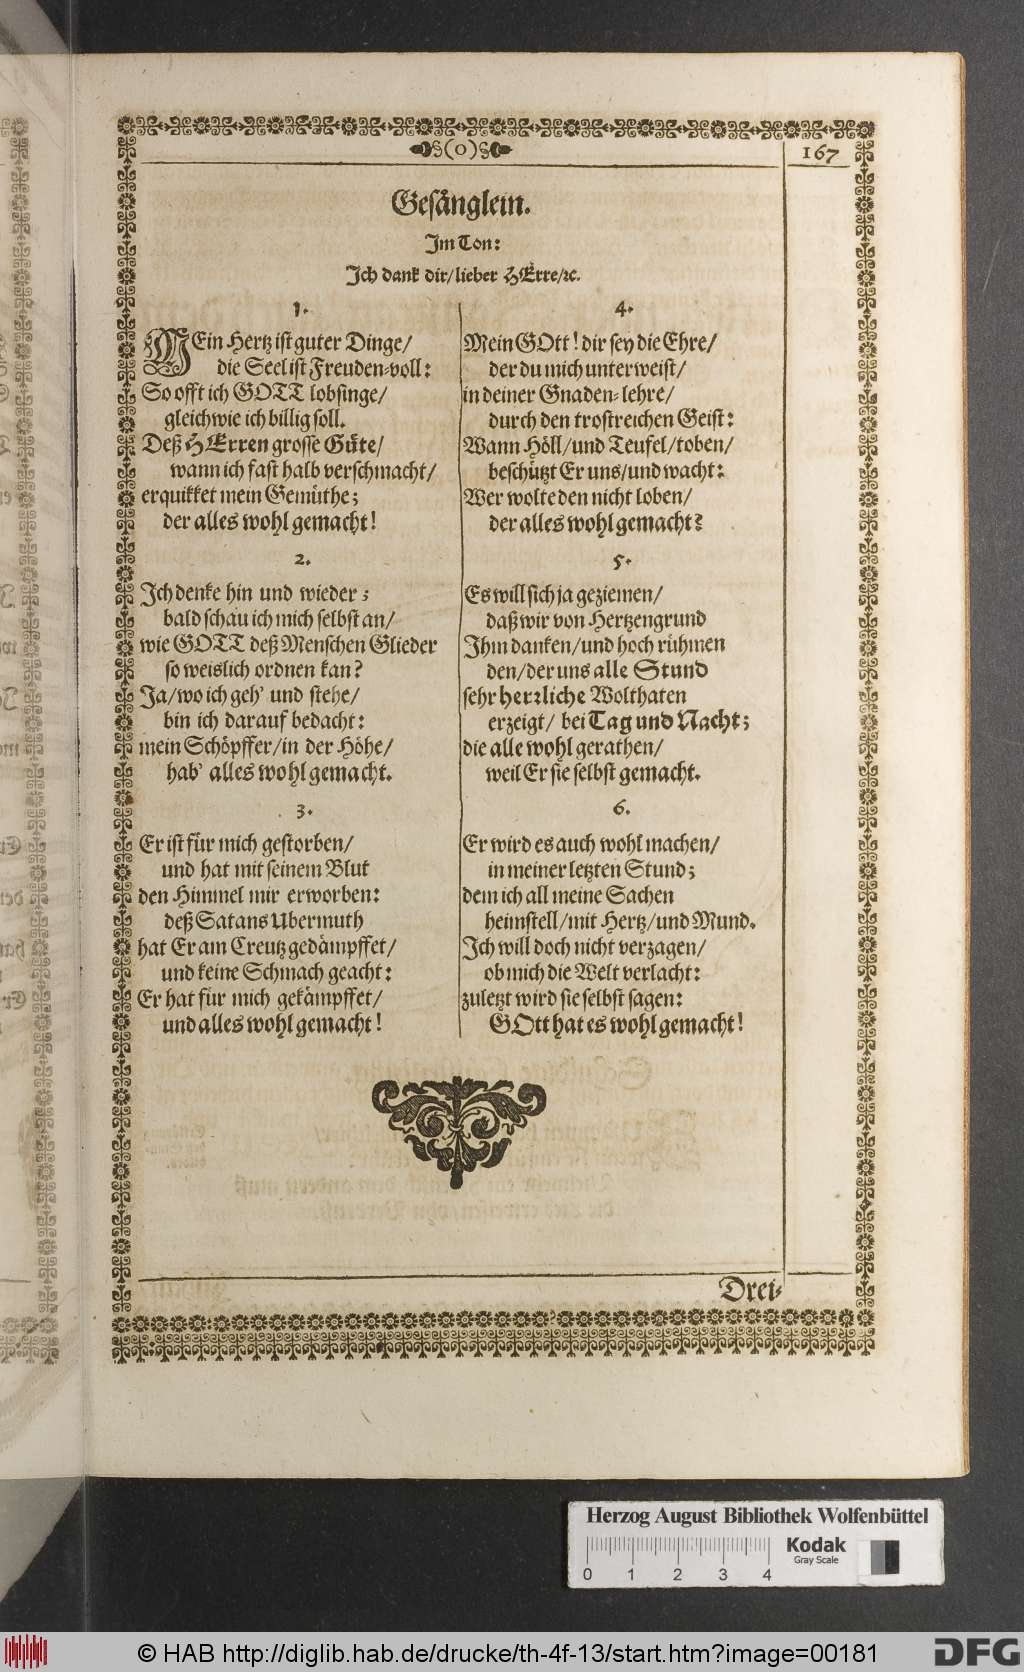 (0)
167
Gesånglein.
Im Ton:
Ich dank dir/lieber HErre/ꝛc.
1.
MEin Hertz ist guter Dinge/
die Seel ist Freuden-voll:
So offt ich GOTT lobsinge/
gleichwie ich billig soll.
Deß HErren grosse Güte/
wann ich fast halb verschmacht/
erquikket mein Gemüthe;
der alles wohl gemacht!
2.
Ich denke hin und wieder;
bald schau ich mich selbst an/
wie GOTT deß Menschen Glieder
so weislich ordnen kan?
Ja/wo ich geh' und stehe/
bin ich darauf bedacht:
mein Schöpffer/in der Höhe/
hab' alles wohl gemacht.
3.
Er ist für mich gestorben/
und hat mit seinem Blut
den Himmel mir erworben:
deß Satans Ubermuth
hat Er am Creutz gedämpffet/
und keine Schmach geacht:
Er hat für mich gekämpffet/
und alles wohl gemacht!
4.
Mein GOtt! dir sey die Ehre/
der du mich unterweist/
in deiner Gnaden-lehre/
durch den trostreichen Geist:
Wann Höll/und Teufel/toben/
beschützt Er uns/und wacht:
Wer wolte den nicht loben/
der alles wohl gemacht?
5.
Es will sich ja geziemen/
daß wir von Hertzengrund
Ihm danken/und hoch rühmen
den/der uns alle Stund
sehr herzliche Wolthaten
erzeigt/ bei Tag und Nacht;
die alle wohl gerathen/
weil Er sie selbst gemacht.
6.
Er wird es auch wohl machen/
in meiner letzten Stund;
dem ich all meine Sachen
heimstell/mit Hertz/und Mund.
Ich will doch nicht verzagen/
ob mich die Welt verlacht:
zuletzt wird sie selbst sagen:
GOtt hat es wohl gemacht!
Drei-
Herzog August Bibliothek Wolfenbüttel
Kodak
Gray Scale
0 1 2 3 4
© HAB http://diglib.hab.de/drucke/th-4f-13/start.htm?image=00181
DFG